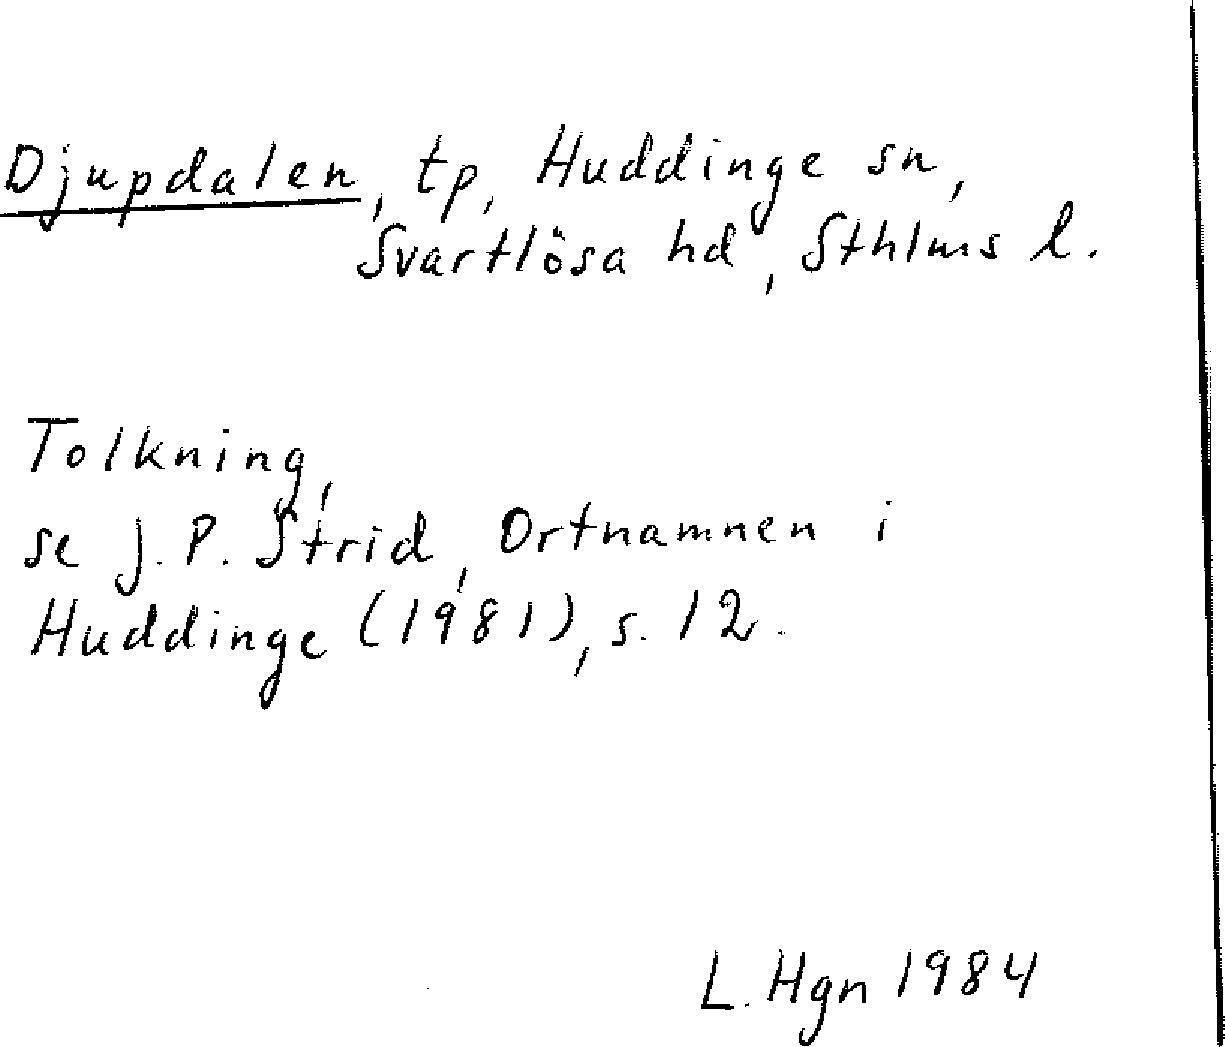 Djupdalen, tp, Huddinge sn,
Svartlösa hd, Sthlms l.
Tolkning,
se J. P. Strid, Ortnamnen i
Huddinge (1981), s. 12.
L. Hgn 1984